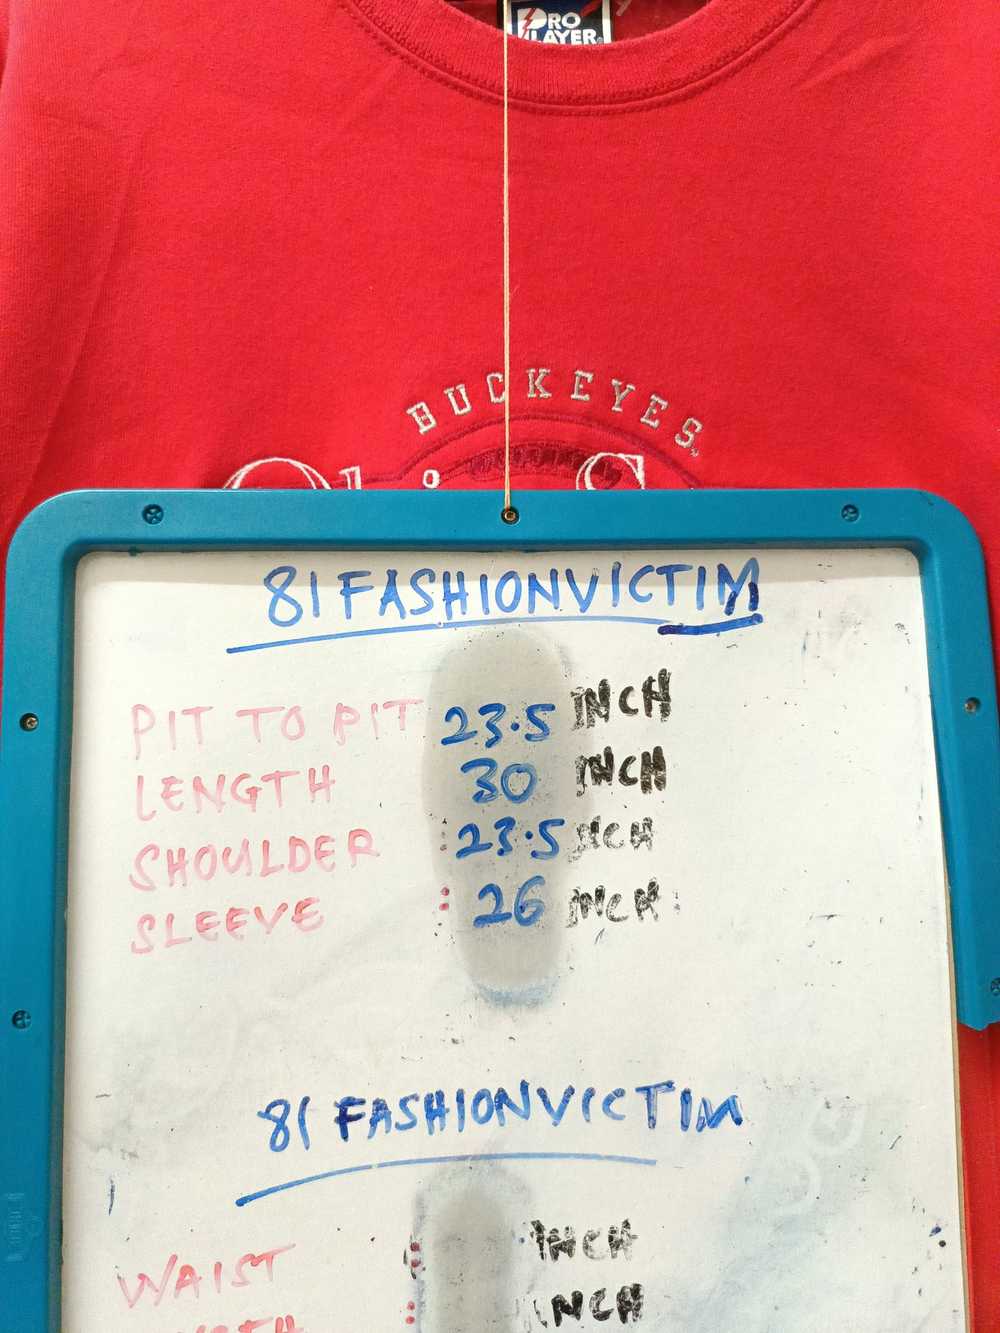 PRO
PLAYER
BUCKEYES
Ohio S
81 FASHIONVICTIM
PIT TO PIT 23.5 INCH
LENGTH 30 INCH
SHOULDER : 23.5 INCH
SLEEVE : 26 INCH
81 FASHIONVICTIM
WAIST : INCH
: INCH